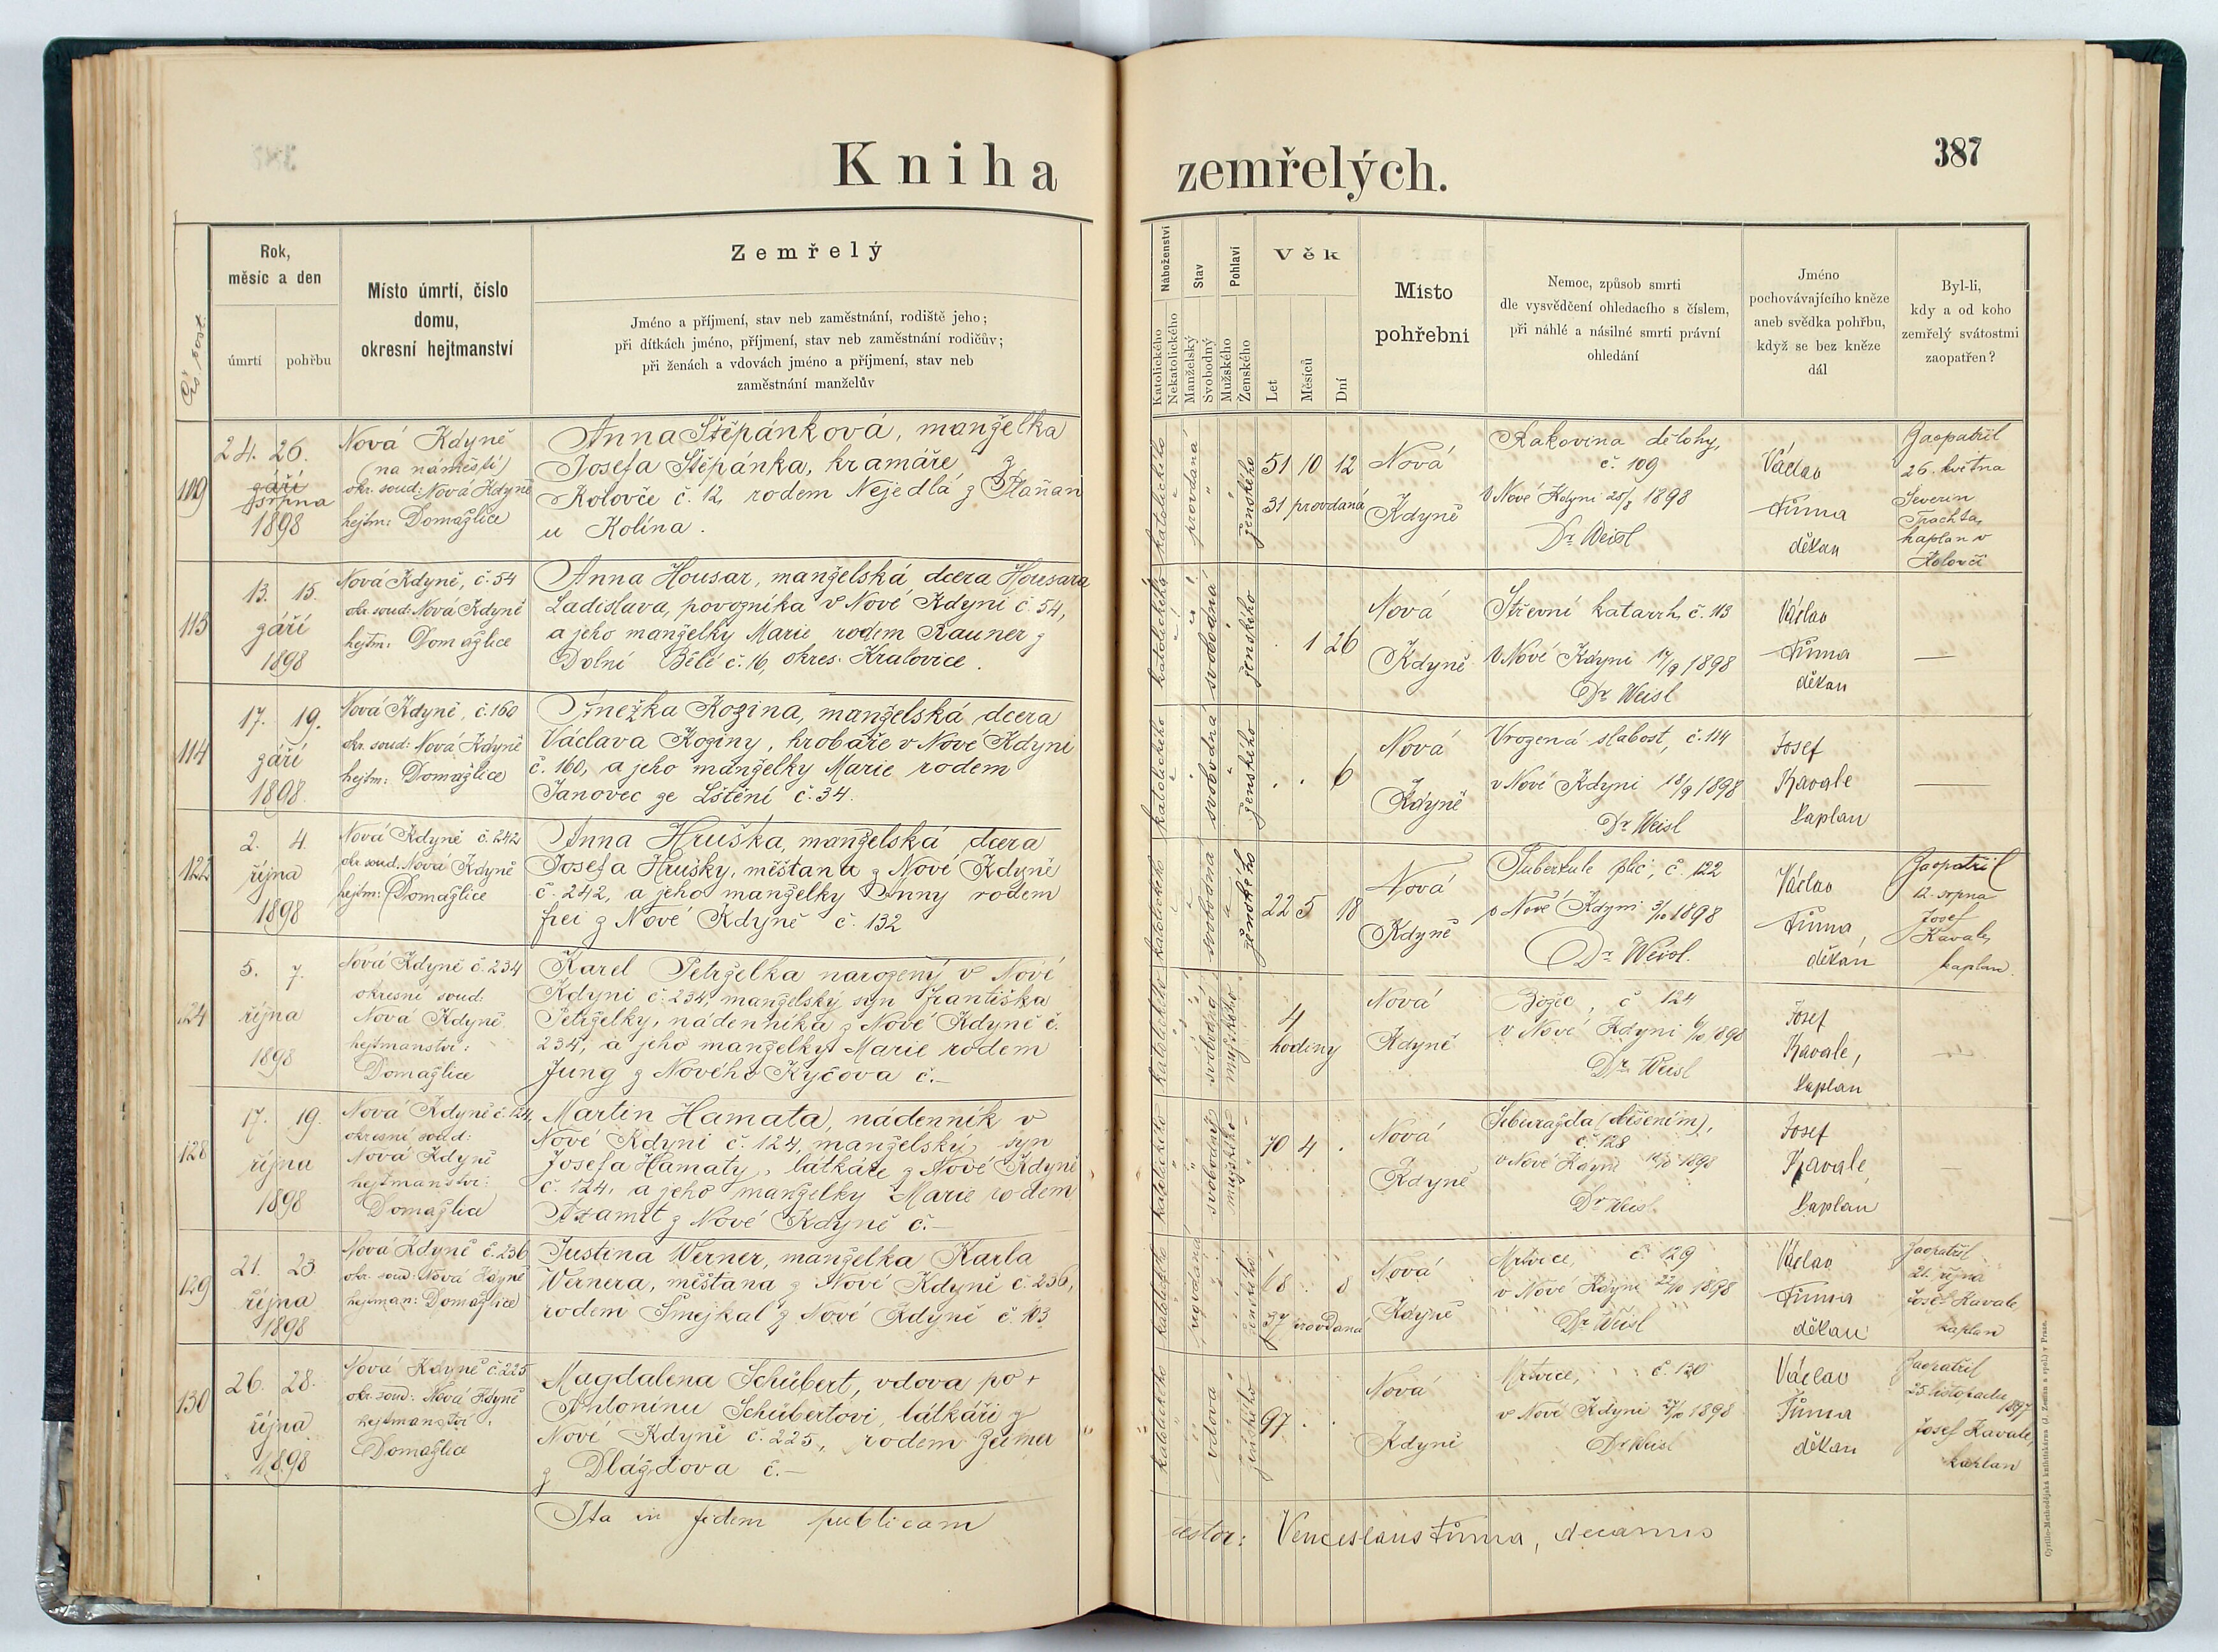 Kniha zemřelých.
387
Čís. post.
Rok,
měsíc a den
úmrtí
pohřbu
Místo úmrtí, číslo
domu,
okresní hejtmanství
Zemřelý
Jméno a příjmení, stav neb zaměstnání, rodiště jeho;
při dítkách jméno, příjmení, stav neb zaměstnání rodičův;
při ženách a vdovách jméno a příjmení, stav neb
zaměstnání manželův
Náboženství
Katolického
Nekatolického
Stav
Manželský
Svobodný
Pohlaví
Mužského
Ženského
Věk
Let
Měsíců
Dní
Místo
pohřební
Nemoc, způsob smrti
dle vysvědčení ohledacího s číslem,
při náhlé a násilné smrti právní
ohledání
Jméno
pochovávajícího kněze
aneb svědka pohřbu,
když se bez kněze
dál
Byl-li,
kdy a od koho
zemřelý svátostmi
zaopatřen?
109
24. 26.
září
srpna
1898
Nová Kdyně
(na náměstí)
okr. soud: Nová Kdyně
hejtm: Domažlice
Anna Štěpánková, manželka
Josefa Štěpánka, kramáře z
Kolovče č. 12, rodem Nejedlá z Plaňan
u Kolína.
katolického
provdaná
ženského
51 10 12
31 provdaná
Nová
Kdyně
Rakovina dělohy,
č. 109
v Nové Kdyni 25/8 1898
Dr. Weisl
Václav
Tůma
děkan
Zaopatřil
26. května
Severin
Trachta,
kaplan v
Kolovči
113
13. 15.
září
1898
Nová Kdyně, č. 54
okr. soud: Nová Kdyně
hejtm: Domažlice
Anna Housar, manželská dcera Housara
Ladislava, povozníka v Nové Kdyni č. 54,
a jeho manželky Marie rodem Rauner z
Dolní Bělé č. 16, okres. Kralovice.
katolického
svobodná
ženského
. 1 26
Nová
Kdyně
Střevní katarrh, č. 113
v Nové Kdyni 14/9 1898
Dr. Weisl
Václav
Tůma
děkan
—
114
17. 19.
září
1898
Nová Kdyně, č. 160
okr. soud: Nová Kdyně
hejtm: Domažlice
Anežka Kozina, manželská dcera
Václava Koziny, hrobaře v Nové Kdyni
č. 160, a jeho manželky Marie rodem
Janovec ze Lštění č. 34.
katolického
svobodná
ženského
. . 6
Nová
Kdyně
Vrozená slabost, č. 114
v Nové Kdyni 18/9 1898
Dr. Weisl
Josef
Kavale
kaplan
—
122
2. 4.
října
1898
Nová Kdyně č. 242
okr. soud: Nová Kdyně
hejtm: Domažlice
Anna Hruška, manželská dcera
Josefa Hrušky, měšťana z Nové Kdyně
č. 242, a jeho manželky Anny rodem
Frei z Nové Kdyně č. 132
katolického
svobodná
ženského
22 5 18
Nová
Kdyně
Tuberkule plic, č. 122
v Nové Kdyni 3/10 1898
Dr. Weisl.
Václav
Tůma,
děkan
Zaopatřil
12. srpna
Josef
Kavale,
kaplan.
124
5. 7.
října
1898
Nová Kdyně č. 234
okresní soud:
Nová Kdyně
hejtmanství:
Domažlice
Karel Petrželka narozený v Nové
Kdyni č. 234, manželský syn Františka
Petrželky, nádenníka z Nové Kdyně č.
234, a jeho manželky Marie rodem
Jung z Nového Kyčova č.—
katolického
svobodný
mužského
4
hodiny
Nová
Kdyně
Božec, č. 124
v Nové Kdyni 6/10 1898
Dr. Weisl
Josef
Kavale,
kaplan
—
128
17. 19.
října
1898
Nová Kdyně č. 124,
okresní soud:
Nová Kdyně
hejtmanství:
Domažlice
Martin Hamata, nádenník v
Nové Kdyni č. 124, manželský syn
Josefa Hamaty, látkáře z Nové Kdyně
č. 124, a jeho manželky Marie rodem
z Nové Kdyně č.—
katolického
svobodný
mužského
70 4 .
Nová
Kdyně
Sebevražda (oběšením),
č. 128
v Nové Kdyni 1898
Dr. Weisl.
Josef
Kavale,
kaplan
—
129
21. 23
října
1898
Nová Kdyně č. 236
okr. soud: Nová Kdyně
hejtman: Domažlice
Justina Werner, manželka Karla
Wernera, měšťana z Nové Kdyně č. 236,
rodem Šmejkal z Nové Kdyně č. 103
katolického
provdaná
ženského
68 . 8
37 provdaná
Nová
Kdyně
Mrtvice, č. 129
v Nové Kdyni 22/10 1898
Dr. Weisl
Václav
Tůma
děkan
Zaopatřil
21. října
Josef Kavale,
kaplan
130
26. 28.
října
1898
Nová Kdyně č. 225
okr. soud: Nová Kdyně
hejtmanství:
Domažlice
Magdalena Schübert, vdova po +
Antonínu Schübertovi, látkáři z
Nové Kdyně č. 225, rodem
z Dlažďova č.—
katolického
vdova
ženského
97 . .
Nová
Kdyně
Mrtvice, č. 130
v Nové Kdyni 27/10 1898
Dr. Weisl
Václav
Tůma
děkan
Zaopatřil
25. listopadu
1897
Josef Kavale,
kaplan
Ita in fidem publicam
testor: Venceslaus Tůma, decanus
Cyrillo-Methodějská knihtiskárna (J. Zeman a spol.) v Praze.